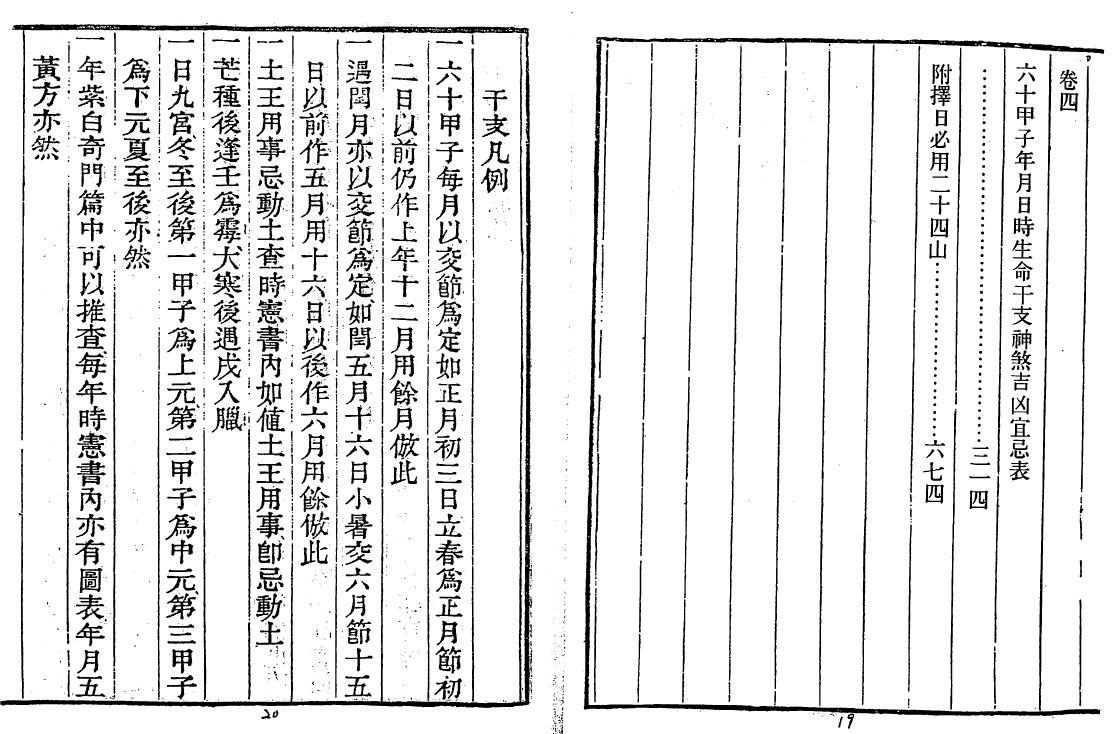 卷四
六十甲子年月日時生命干支神煞吉凶宜忌表
……………………………………三一四
附擇日必用二十四山……………………六七四
19
干支凡例
一六十甲子每月以交節爲定如正月初三日立春爲正月節初
二日以前仍作上年十二月用餘月倣此
一遇閏月亦以交節爲定如閏五月十六日小暑交六月節十五
日以前作五月用十六日以後作六月用餘倣此
一土王用事忌動土查時憲書內如値土王用事卽忌動土
一芒種後逢壬爲霉大寒後遇戌入臘
一日九宮冬至後第一甲子爲上元第二甲子爲中元第三甲子
爲下元夏至後亦然
一年紫白奇門篇中可以推查每年時憲書內亦有圖表年月五
黃方亦然
20